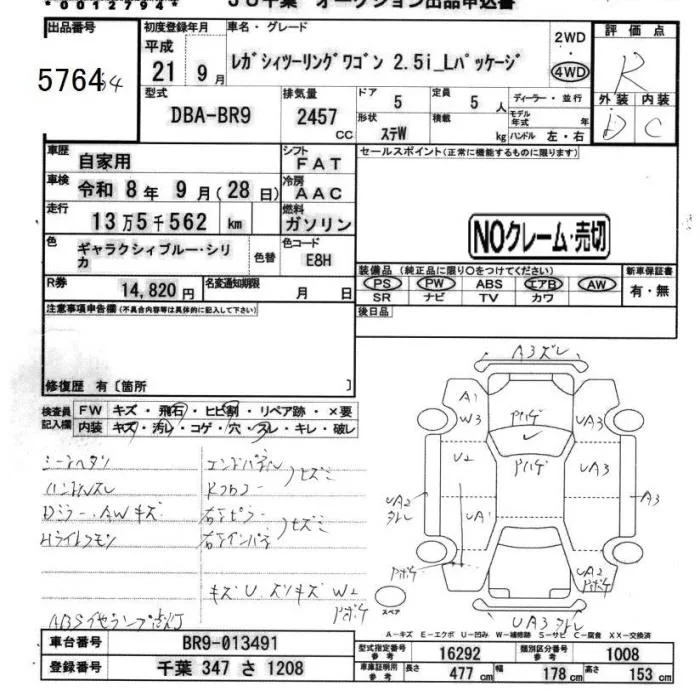 0012794
JU千葉 オークション出品申込書
出品番号
57644
初度登録年月
平成
21年 9月
車名・グレード
レガシィツーリングワゴン 2.5i_Lパッケージ
2WD
・
4WD
評価点
R
外装 内装
D C
型式
DBA-BR9
排気量
2457
CC
ドア
5
定員
5人
ディーラー・並行
形状
ステW
積載
kg
モデル年式 年
ハンドル 左・右
車歴
自家用
シフト
FAT
セールスポイント(正常に機能するものに限ります)
車検
令和 8年 9月(28日)
冷房
AAC
走行
13万5千562 km
燃料
ガソリン
NOクレーム・売切
色
ギャラクシィブルー・シリカ
色替
色コード
E8H
装備品 (純正品に限り〇をつけてください)
新車保証書
PS PW ABS エアB AW
有・無
SR ナビ TV カワ
R券
14,820円
名変通知期限
月 日
後日品
注意事項申告欄(不具合内容等は具体的に記入して下さい)
修復歴 有〔箇所 〕
検査員記入欄
FW キズ・飛石・ヒビ割・リペア跡・×要
内装 キズ・汚レ・コゲ・穴・スレ・キレ・破レ
シートヘタリ
エンドパネル
ハンドルスレ
Rフロアー
ヒズミ
Dミラー・AWキズ
右Rピラー
Hライトクモリ
右Rインパネ
ヒズミ
キズ U ズリキズ W2
Pボケ
ABSイセランプ点灯
A3ズレ
A1
W3
Pハゲ
UA3
U2
Pハゲ
UA3
UA2
ズレ
UA1
A3
Pボケ
UA2
Pボケ
スペア
UA3ズレ
A-キズ E-エクボ U-凹み W-補修跡 S-サビ C-腐食 XX-交換済
車台番号
BR9-013491
型式指定番号
参考
16292
類別区分番号
参考
1008
登録番号
千葉 347 さ 1208
車庫証明用
参考
長さ
477 cm
幅
178 cm
高さ
153 cm